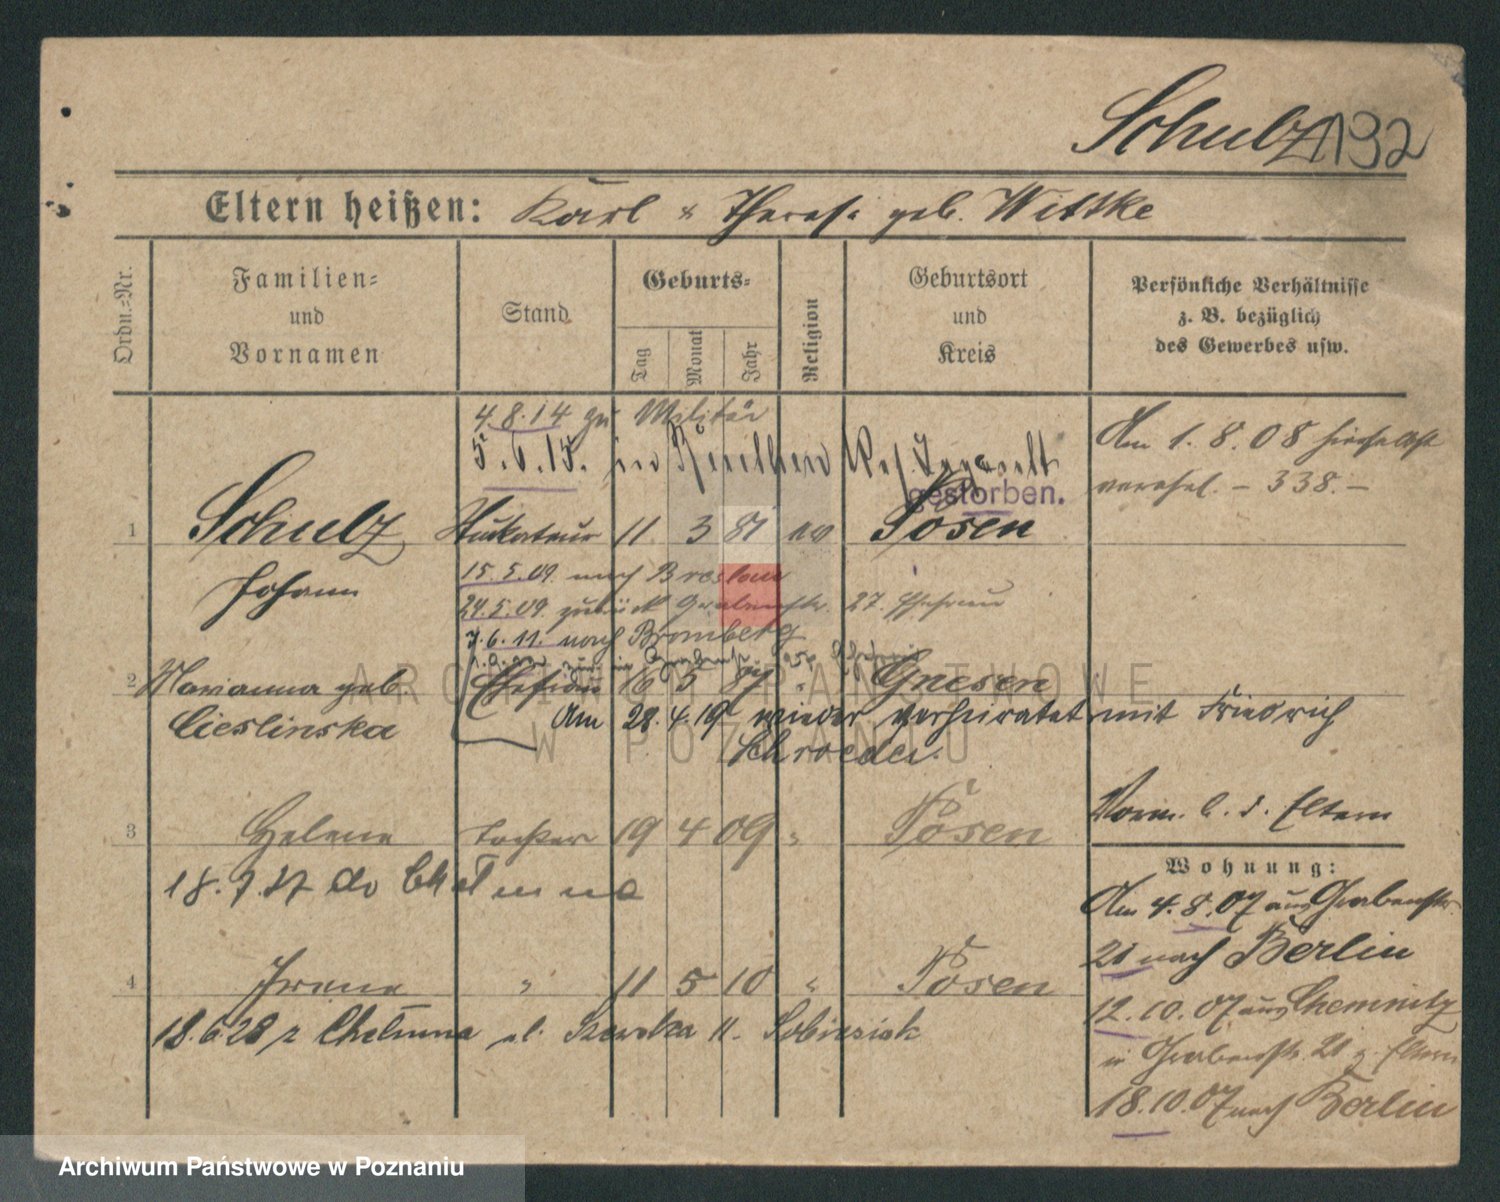 Schulz 132
Eltern heißen: Karl & Theres. geb. Wittke
Ordn.-Nr.
Familien-
und
Vornamen
Stand
Geburts-
Tag
Monat
Jahr
Religion
Geburtsort
und
Kreis
Persönliche Verhältnisse
z. B. bezüglich
des Gewerbes usw.
4.8.14 zu Militär
5.6.15. in
gestorben.
Am 1.8.08
– 338. –
1 Schulz Stukateur 11 3 81 Posen
Johann
15.5.09 nach Breslau
24.5.09 zurück 27
7.6.11. nach Bromberg
2 Marianna geb. Ehefrau 16 5 87 Gnesen
Cieslinska
Am 28.4.19 wieder verheiratet mit Friedrich
Schroeder.
3 Helene Tochter 19 4 09 " Posen
18.7.27 do Chełmna
4 Irene " 11 5 10 " Posen
18.6.28 z Chełmna ul. Szewska 11. Sobiesiak
Vorm. b. d. Eltern
Wohnung:
Am 4.8.07 aus Grabenstr.
21 nach Berlin
12.10.07 aus Chemnitz
in Grabenstr. 21 z. Eltern
18.10.07 nach Berlin
ARCHIWUM PAŃSTWOWE
W POZNANIU
Archiwum Państwowe w Poznaniu